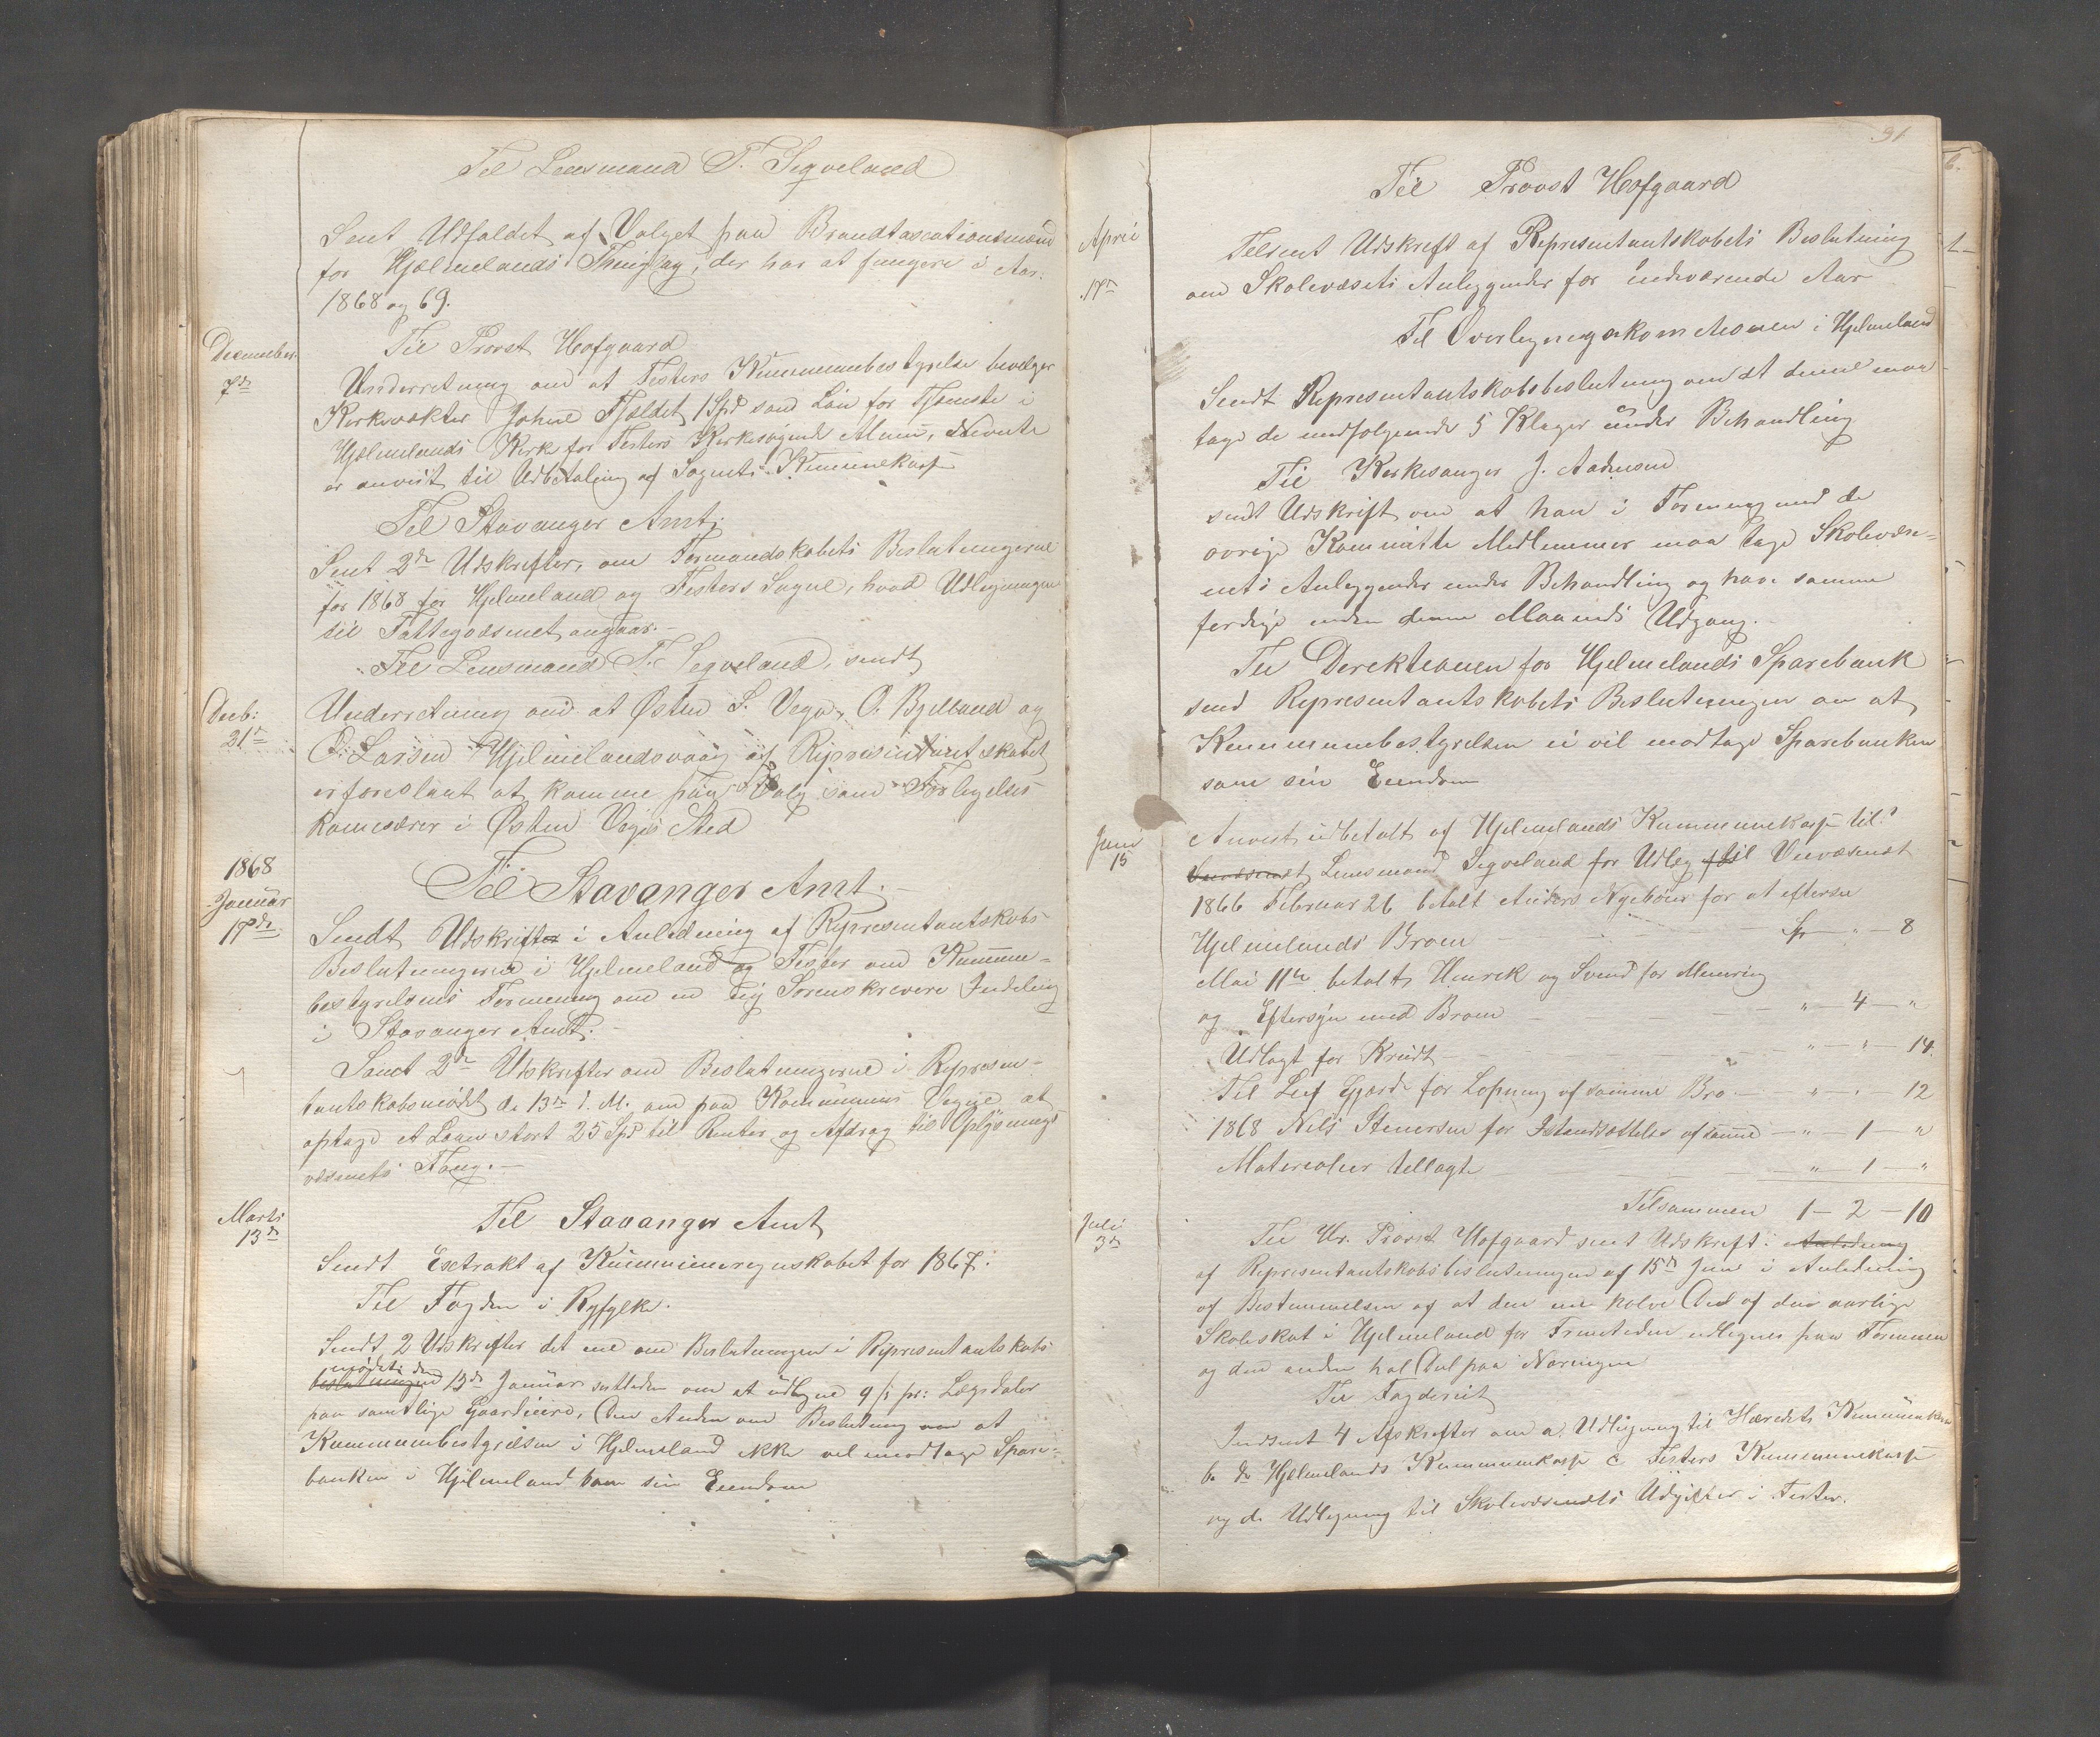 Til Lensmand T. Segveland
Sent Udfaldet af Valget paa Brandtaxationsmænd
for Hjælmelands Thinglag, der har at fungere i Aar.
1868 og 69.
December
7de
Til Provst Hofgaard
Underretning om at Fisters Kummunebestyrelse bevelger
Kirkevækter Johne Fjældet 1 Spd som Løn for Tjeneste i
Hjælmelands Kirk for Fisters Kirkesøgende Almu,
er anvist til Udbetaling af Sognets Kummunekasse
Til Stavanger Amt.
Sent 2de Udskrifter, om Formandskabets Beslutningerne
for 1868 for Hjelmeland og Fisters Sogne, hvad Udligningen
til Fattigvæsenet angaar.
Til Lensmand T. Segveland, sendt
Decb:
21de
Underretning om at Østen S. Vega, O. Bjelland og
O. Larsen Hjelmelandsvaag af Representantskabet
er foreslaat at komme paa Valg som Forligelses
komesærer i Østen Vegs Sted
1868
Januar
17de
Til Stavanger Amt.
Sendt Udskrifter i Anledning af Representantskabs
Beslutningerne i Hjelmeland og Fister om Kummune-
bestyrelsens Formening om en ny Sorenskrivere Indeling
i Stavanger Amt.
Sent 2de Udskrifter om Beslutningerne i Represen-
tantskabsmødet de 13de d. M. om paa Kommunens Vegne at
optage et Laan stort 25 Spd til Renter og Afdrag til Oplysnings
væsenets Fong.
Marts
13de
Til Stavanger Amt
Sendt Extrakt af Kummuneregnskabet for 1867.
Til Fogden i Ryfylke.
Sendt 2 Udskrifter det ene om Beslutningen i Representantskabs
mødet den
beslutningen 13de Januar sistleden om at udligne 9 ß pr: Lægdsdaler
paa samtlige Gaardeiere, Den Anden om Beslutning om at
Kummunebestyrelsen i Hjelmeland ikke vil modtage Spare-
banken i Hjelmeland som sin Eiendom
91
Til Provst Hofgaard
April
17de
Tilsent Udskrift af Representantskabets Beslutning
om Skolevæsets Anleggender for indeværende Aar
Til Overligningskomitionen i Hjelmeland
Sendt Representantskabsbeslutning om at denne maa
tage de medfølgende 5 Klager under Behandling
Til Kirkesanger J. Aadnesen
sendt Udskrift om at han i Forening med de
øvrige Kommitte Medlemmer maa tage Skolevæse-
nets Anleggender under Behandling og have samme
ferdige inden denne Maaneds Udgang.
Til Derektionen for Hjelmelands Sparebank
send Representantskabets Beslutningen om at
Kummunebestyrelsen ei vil modtage Sparebanken
som sin Eiendom
Juni
15
Anvist udbetalt af Hjelmelands Kummunekasse til:
Lensmand Segveland for Udleg til Veivæsenet
1866 Februar 26 betalt Anders Nyebøur for at eftersee
Hjelmelands Broen — Sp — " — 8
Mai 11te betalt Henrik og Svend for Muuring
og Eftersyn med Broen — " — 4 — "
Udlagt for Krudt — " — " — 14.
Til Leif Gjord for Løpning af samme Bro — " — " — 12
1868 Nels Stenersen for Istandsættelse af samme — " — 1 — "
Materialier tillagte — " — 1 — "
Tilsammen 1 — 2 — 10
Juli
3de
Til Hr. Provst Hofgaard sent Udskrift i Anledning
af Representantskabsbeslutningen af 15de Juni i Anledning
af Bestemmelsen af at den ene halve Deel af den aarlige
Skoleskat i Hjelmeland for Fremtiden udlignes paa Formuen
og den anden hal Deel paa Næringen
Til Fogderiet
Indsent 4 Afskrifter om a. Udligning til Heredets Kummunekasse
b. do Hjelmelands Kummunekasse c Fisters Kummunekasse
og d. Udligning til Skolevæsenets Udgifter i Fister.